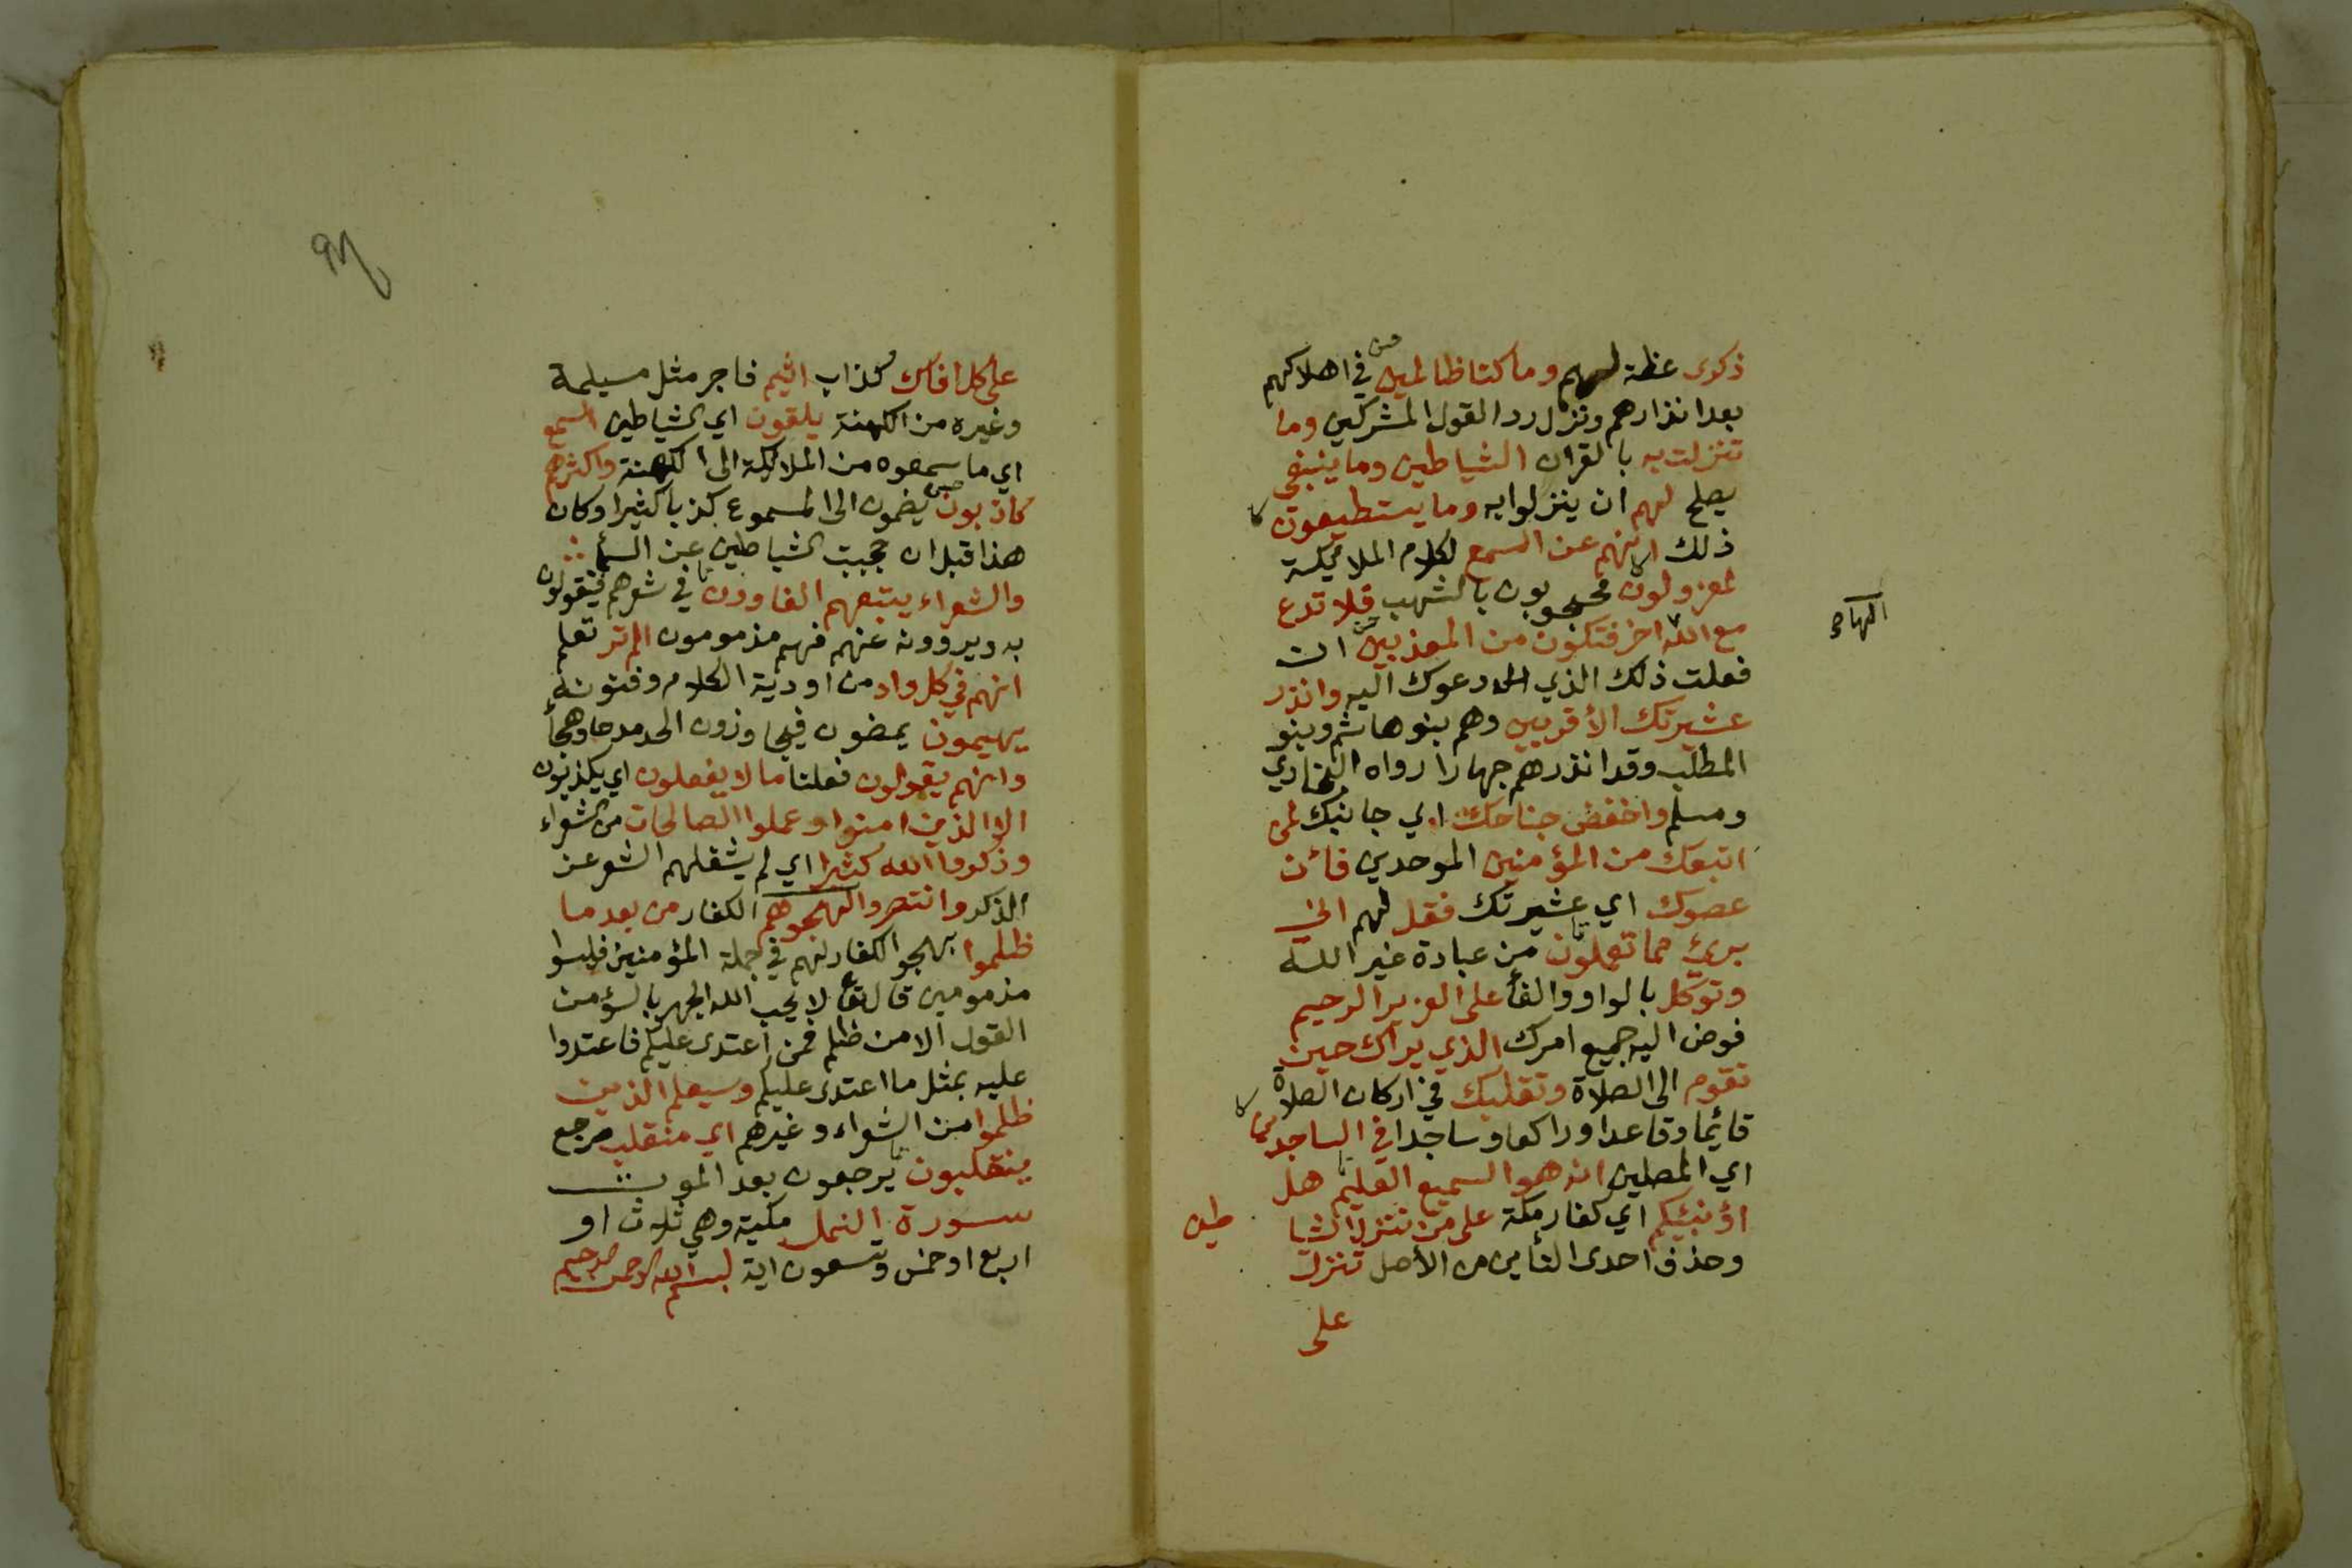 ذكرى عظة لهم وما كنا ظالمين في اهلاكهم
بعد انذارهم ونزل ردا لقول المشركين وما
تنزلت به بالقران الشياطين وما ينبغي
يصلح لهم ان ينزلوا به وما يستطيعون
ذلك انهم عن السمع لكلام الملائكة
لمعزولون محجوبون بالشهب فلا تدع
مع الله اخر فتكون من المعذبين ان
الها
فعلت ذلك الذي دعوك اليه وانذر
عشيرتك الأقربين وهم بنو هاشم وبنو
المطلب وقد انذرهم جهارا رواه البخاري
ومسلم واخفض جناحك اي جانبك لمن
اتبعك من المؤمنين الموحدين فأن
عصوك اي عشيرتك فقل لهم اني
بريئ مما تعملون من عبادة غير الله
وتوكل بالواو والفأ على العزيز الرحيم
فوض اليه جميع امرك الذي يراك حين
تقوم الى الصلاة وتقلبك في اركان الصلاة
قائما وقاعدا وراكعا وساجدا في الساجدين
اي المصلين انه هو السميع العليم هل
اؤنبئكم اي كفار مكة على من تنزل الشيا
طين
وحذف احدى التأين من الأصل تنزل
على
على كل افاك كذاب اثيم فاجر مثل مسيلمة
وغيره من الكهنة يلقون اي الشياطين السمع
اي ما سمعوه من الملائكة الى الكهنة واكثرهم
كاذبون يضمون الى المسموع كذبا كثيرا وكان
هذا قبل ان حجبت الشياطين عن السمأ
والشعراء يتبعهم الغاوون في شعرهم فيقولون
به ويروونه عنهم فهم مذمومون الم تر تعلم
انهم في كل واد من اودية الكلام وفنونه
يهيمون يمضون فيجاوزون الحد مدحا وهجأ
وانهم يقولون فعلنا ما لا يفعلون اي يكذبون
الا الذين امنوا وعملوا الصالحات من الشعراء
وذكروا الله كثيرا اي لم يشغلهم الشعر عن
الذكر وانتصروا بهجوهم الكفار من بعد ما
ظلموا بهجو الكفار لهم في جملة المؤمنين فليسوا
مذمومين قال تعا لا يحب الله الجهر بالسؤ من
القول الا من ظلم فمن اعتدى عليكم فاعتدوا
عليه بمثل ما اعتدى عليكم وسيعلم الذين
ظلموا من الشعراء وغيرهم اي منقلب مرجع
ينقلبون يرجعون بعد الموت
سورة النمل مكية وهي ثلاث او
اربع او خمس وتسعون اية بسم الله الرحمن الرحيم